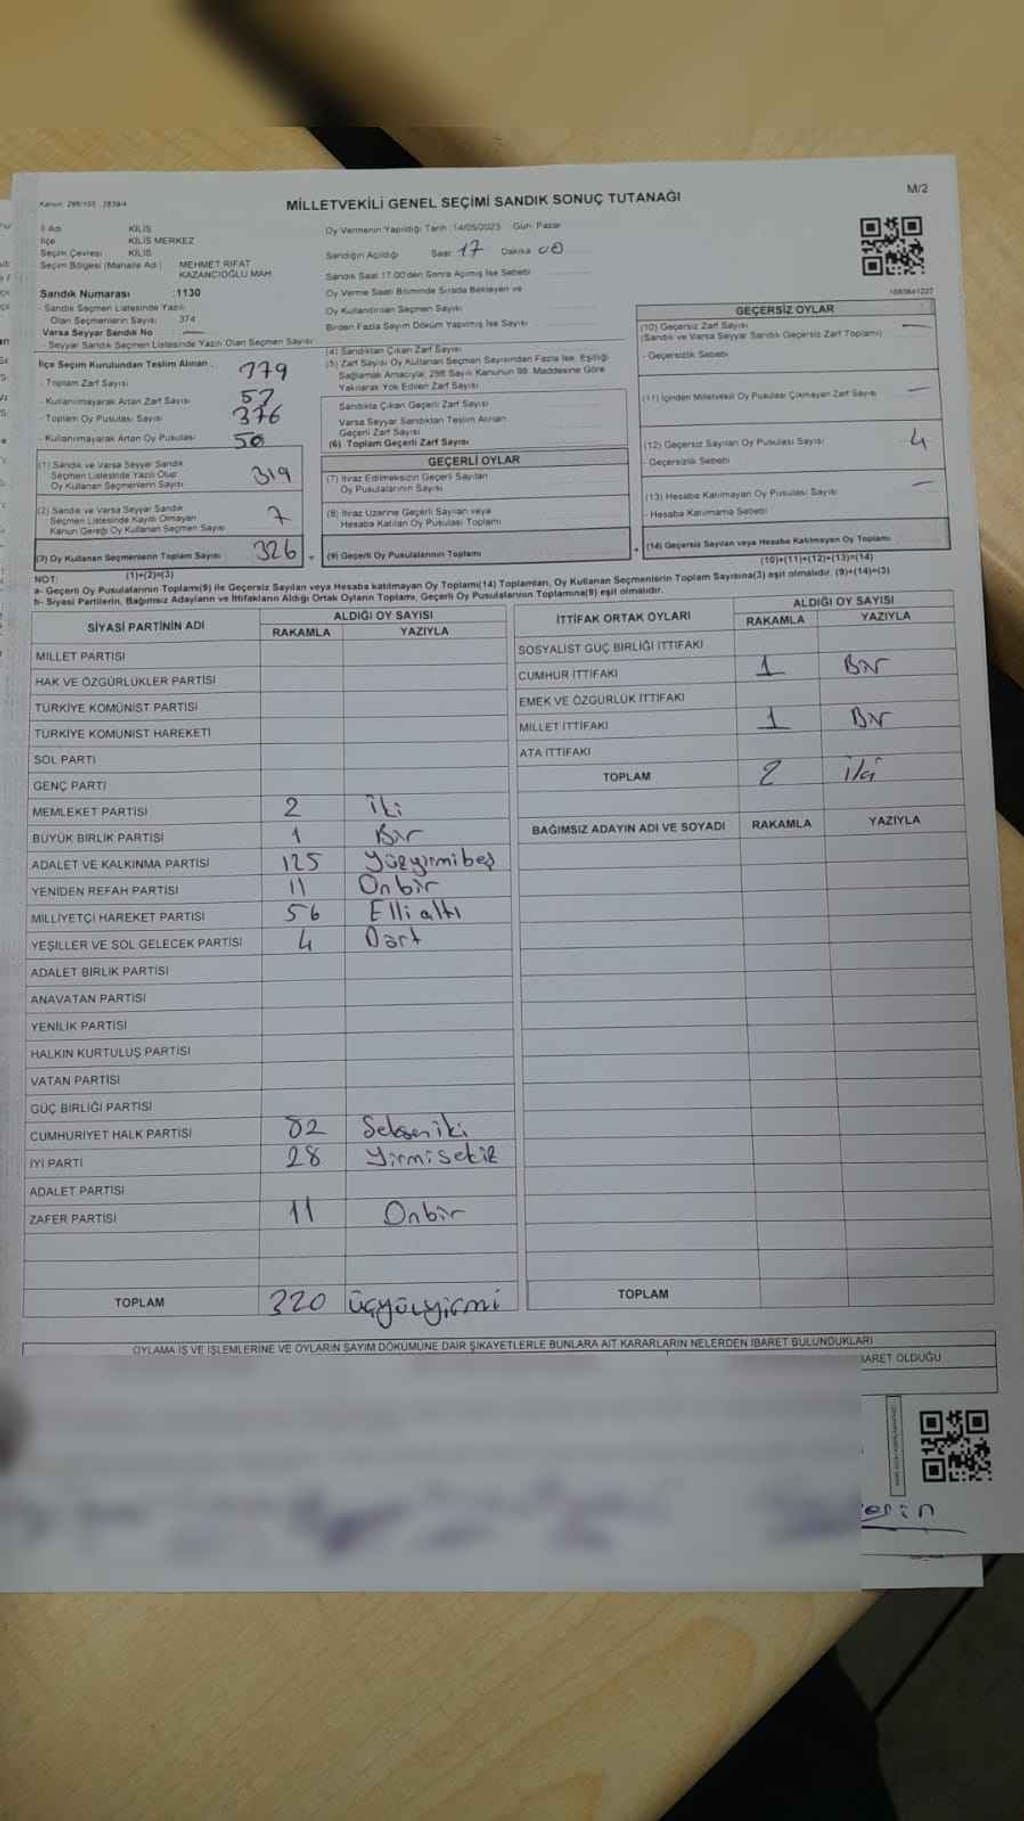 Kanun: 298/105 - 2839/4
MİLLETVEKİLİ GENEL SEÇİMİ SANDIK SONUÇ TUTANAĞI
M/2
İl Adı KİLİS
İlçe KİLİS MERKEZ
Seçim Çevresi KİLİS
Seçim Bölgesi (Mahalle Adı) MEHMET RIFAT KAZANCIOĞLU MAH.
Sandık Numarası :1130
- Sandık Seçmen Listesinde Yazılı
Olan Seçmenlerin Sayısı 374
Varsa Seyyar Sandık No —
- Seyyar Sandık Seçmen Listesinde Yazılı Olan Seçmen Sayısı
Oy Vermenin Yapıldığı Tarih 14/05/2023 Gün: Pazar
Sandığın Açıldığı Saat 17 Dakika 00
Sandık Saat 17.00'den Sonra Açılmış İse Sebebi
Oy Verme Saati Bitiminde Sırada Bekleyen ve
Oy Kullandırılan Seçmen Sayısı
Birden Fazla Sayım Döküm Yapılmış İse Sayısı
İlçe Seçim Kurulundan Teslim Alınan
- Toplam Zarf Sayısı 379
- Kullanılmayarak Artan Zarf Sayısı 57
- Toplam Oy Pusulası Sayısı 376
- Kullanılmayarak Artan Oy Pusulası 50
(1) Sandık ve Varsa Seyyar Sandık
Seçmen Listesinde Yazılı Olup
Oy Kullanan Seçmenlerin Sayısı 319
(2) Sandık ve Varsa Seyyar Sandık
Seçmen Listesinde Kaydı Olmayan
Kanun Gereği Oy Kullanan Seçmen Sayısı 7
(3) Oy Kullanan Seçmenlerin Toplam Sayısı 326
(1)+(2)=(3)
(4) Sandıktan Çıkan Zarf Sayısı
(5) Zarf Sayısı Oy Kullanan Seçmen Sayısından Fazla İse, Eşitliği
Sağlamak Amacıyla, 298 Sayılı Kanunun 98. Maddesine Göre
Yakılarak Yok Edilen Zarf Sayısı
Sandıkta Çıkan Geçerli Zarf Sayısı
Varsa Seyyar Sandıktan Teslim Alınan
Geçerli Zarf Sayısı
(6) Toplam Geçerli Zarf Sayısı
GEÇERLİ OYLAR
(7) İtiraz Edilmeksizin Geçerli Sayılan
Oy Pusulalarının Sayısı
(8) İtiraz Üzerine Geçerli Sayılan veya
Hesaba Katılan Oy Pusulası Toplamı
(9) Geçerli Oy Pusulalarının Toplamı
GEÇERSİZ OYLAR
(10) Geçersiz Zarf Sayısı —
(Sandık ve Varsa Seyyar Sandık Geçersiz Zarf Toplamı)
- Geçersizlik Sebebi
(11) İçinden Milletvekili Oy Pusulası Çıkmayan Zarf Sayısı —
(12) Geçersiz Sayılan Oy Pusulası Sayısı 4
- Geçersizlik Sebebi
(13) Hesaba Katılmayan Oy Pusulası Sayısı —
- Hesaba Katılmama Sebebi
(14) Geçersiz Sayılan veya Hesaba Katılmayan Oy Toplamı
(10)+(11)+(12)+(13)=(14)
NOT:
a- Geçerli Oy Pusulalarının Toplamı(9) ile Geçersiz Sayılan veya Hesaba katılmayan Oy Toplamı(14) Toplamları, Oy Kullanan Seçmenlerin Toplam Sayısına(3) eşit olmalıdır. (9)+(14)=(3)
b- Siyasi Partilerin, Bağımsız Adayların ve İttifakların Aldığı Ortak Oyların Toplamı, Geçerli Oy Pusulalarının Toplamına(9) eşit olmalıdır.
SİYASİ PARTİNİN ADI ALDIĞI OY SAYISI
RAKAMLA YAZIYLA
MİLLET PARTİSİ
HAK VE ÖZGÜRLÜKLER PARTİSİ
TÜRKİYE KOMÜNİST PARTİSİ
TÜRKİYE KOMÜNİST HAREKETİ
SOL PARTİ
GENÇ PARTİ
MEMLEKET PARTİSİ 2 İki
BÜYÜK BİRLİK PARTİSİ 1 Bir
ADALET VE KALKINMA PARTİSİ 125 Yüzyirmibeş
YENİDEN REFAH PARTİSİ 11 Onbir
MİLLİYETÇİ HAREKET PARTİSİ 56 Elli altı
YEŞİLLER VE SOL GELECEK PARTİSİ 4 Dört
ADALET BİRLİK PARTİSİ
ANAVATAN PARTİSİ
YENİLİK PARTİSİ
HALKIN KURTULUŞ PARTİSİ
VATAN PARTİSİ
GÜÇ BİRLİĞİ PARTİSİ
CUMHURİYET HALK PARTİSİ 82 Seksen iki
İYİ PARTİ 28 Yirmi sekiz
ADALET PARTİSİ
ZAFER PARTİSİ 11 Onbir
TOPLAM 320 üçyüzyirmi
İTTİFAK ORTAK OYLARI ALDIĞI OY SAYISI
RAKAMLA YAZIYLA
SOSYALİST GÜÇ BİRLİĞİ İTTİFAKI
CUMHUR İTTİFAKI 1 Bir
EMEK VE ÖZGÜRLÜK İTTİFAKI
MİLLET İTTİFAKI 1 Bir
ATA İTTİFAKI
TOPLAM 2 iki
BAĞIMSIZ ADAYIN ADI VE SOYADI RAKAMLA YAZIYLA
TOPLAM
OYLAMA İŞ VE İŞLEMLERİNE VE OYLARIN SAYIM DÖKÜMÜNE DAİR ŞİKAYETLERLE BUNLARA AİT KARARLARIN NELERDEN İBARET BULUNDUKLARI
BARET OLDUĞU